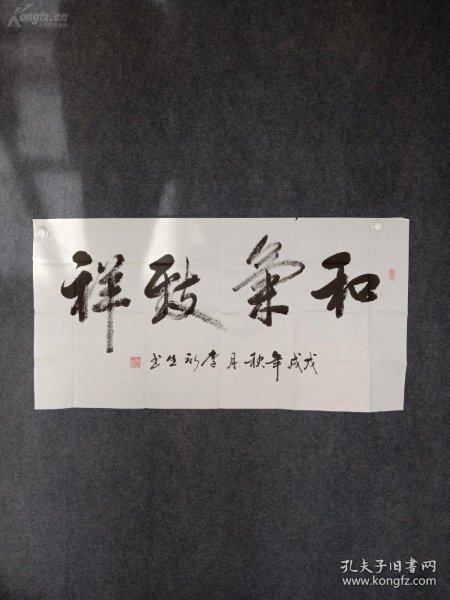 Kongfz.cn
和氣致祥
戊戌年秋月李新生书
孔夫子旧书网
www.kongfz.com